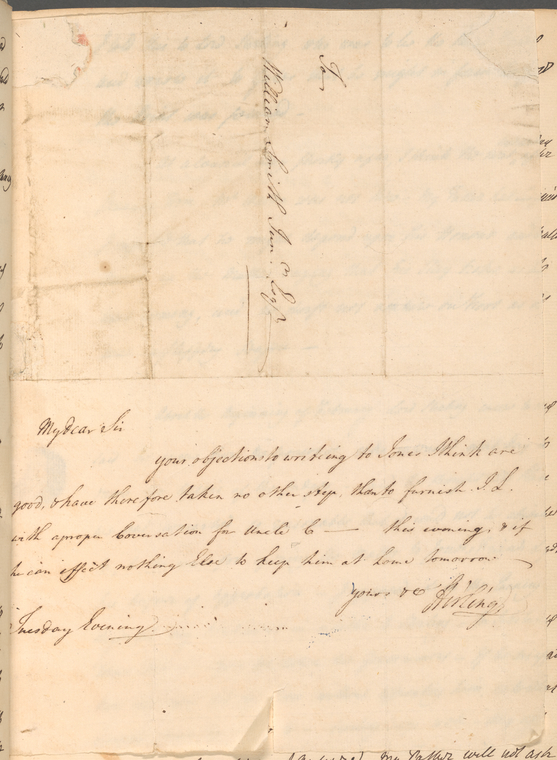 To
William Smith Junr. Esqr.
My dear Sir
your objections to writing to Jones I think are
good, & have therefore taken no other step, than to furnish I. L.
with a proper Conversation for Uncle C— this evening, & if
he can effect nothing Else to keep him at home tomorrow
yours &c Stirling,
Tuesday Evening.
my Father will not ask